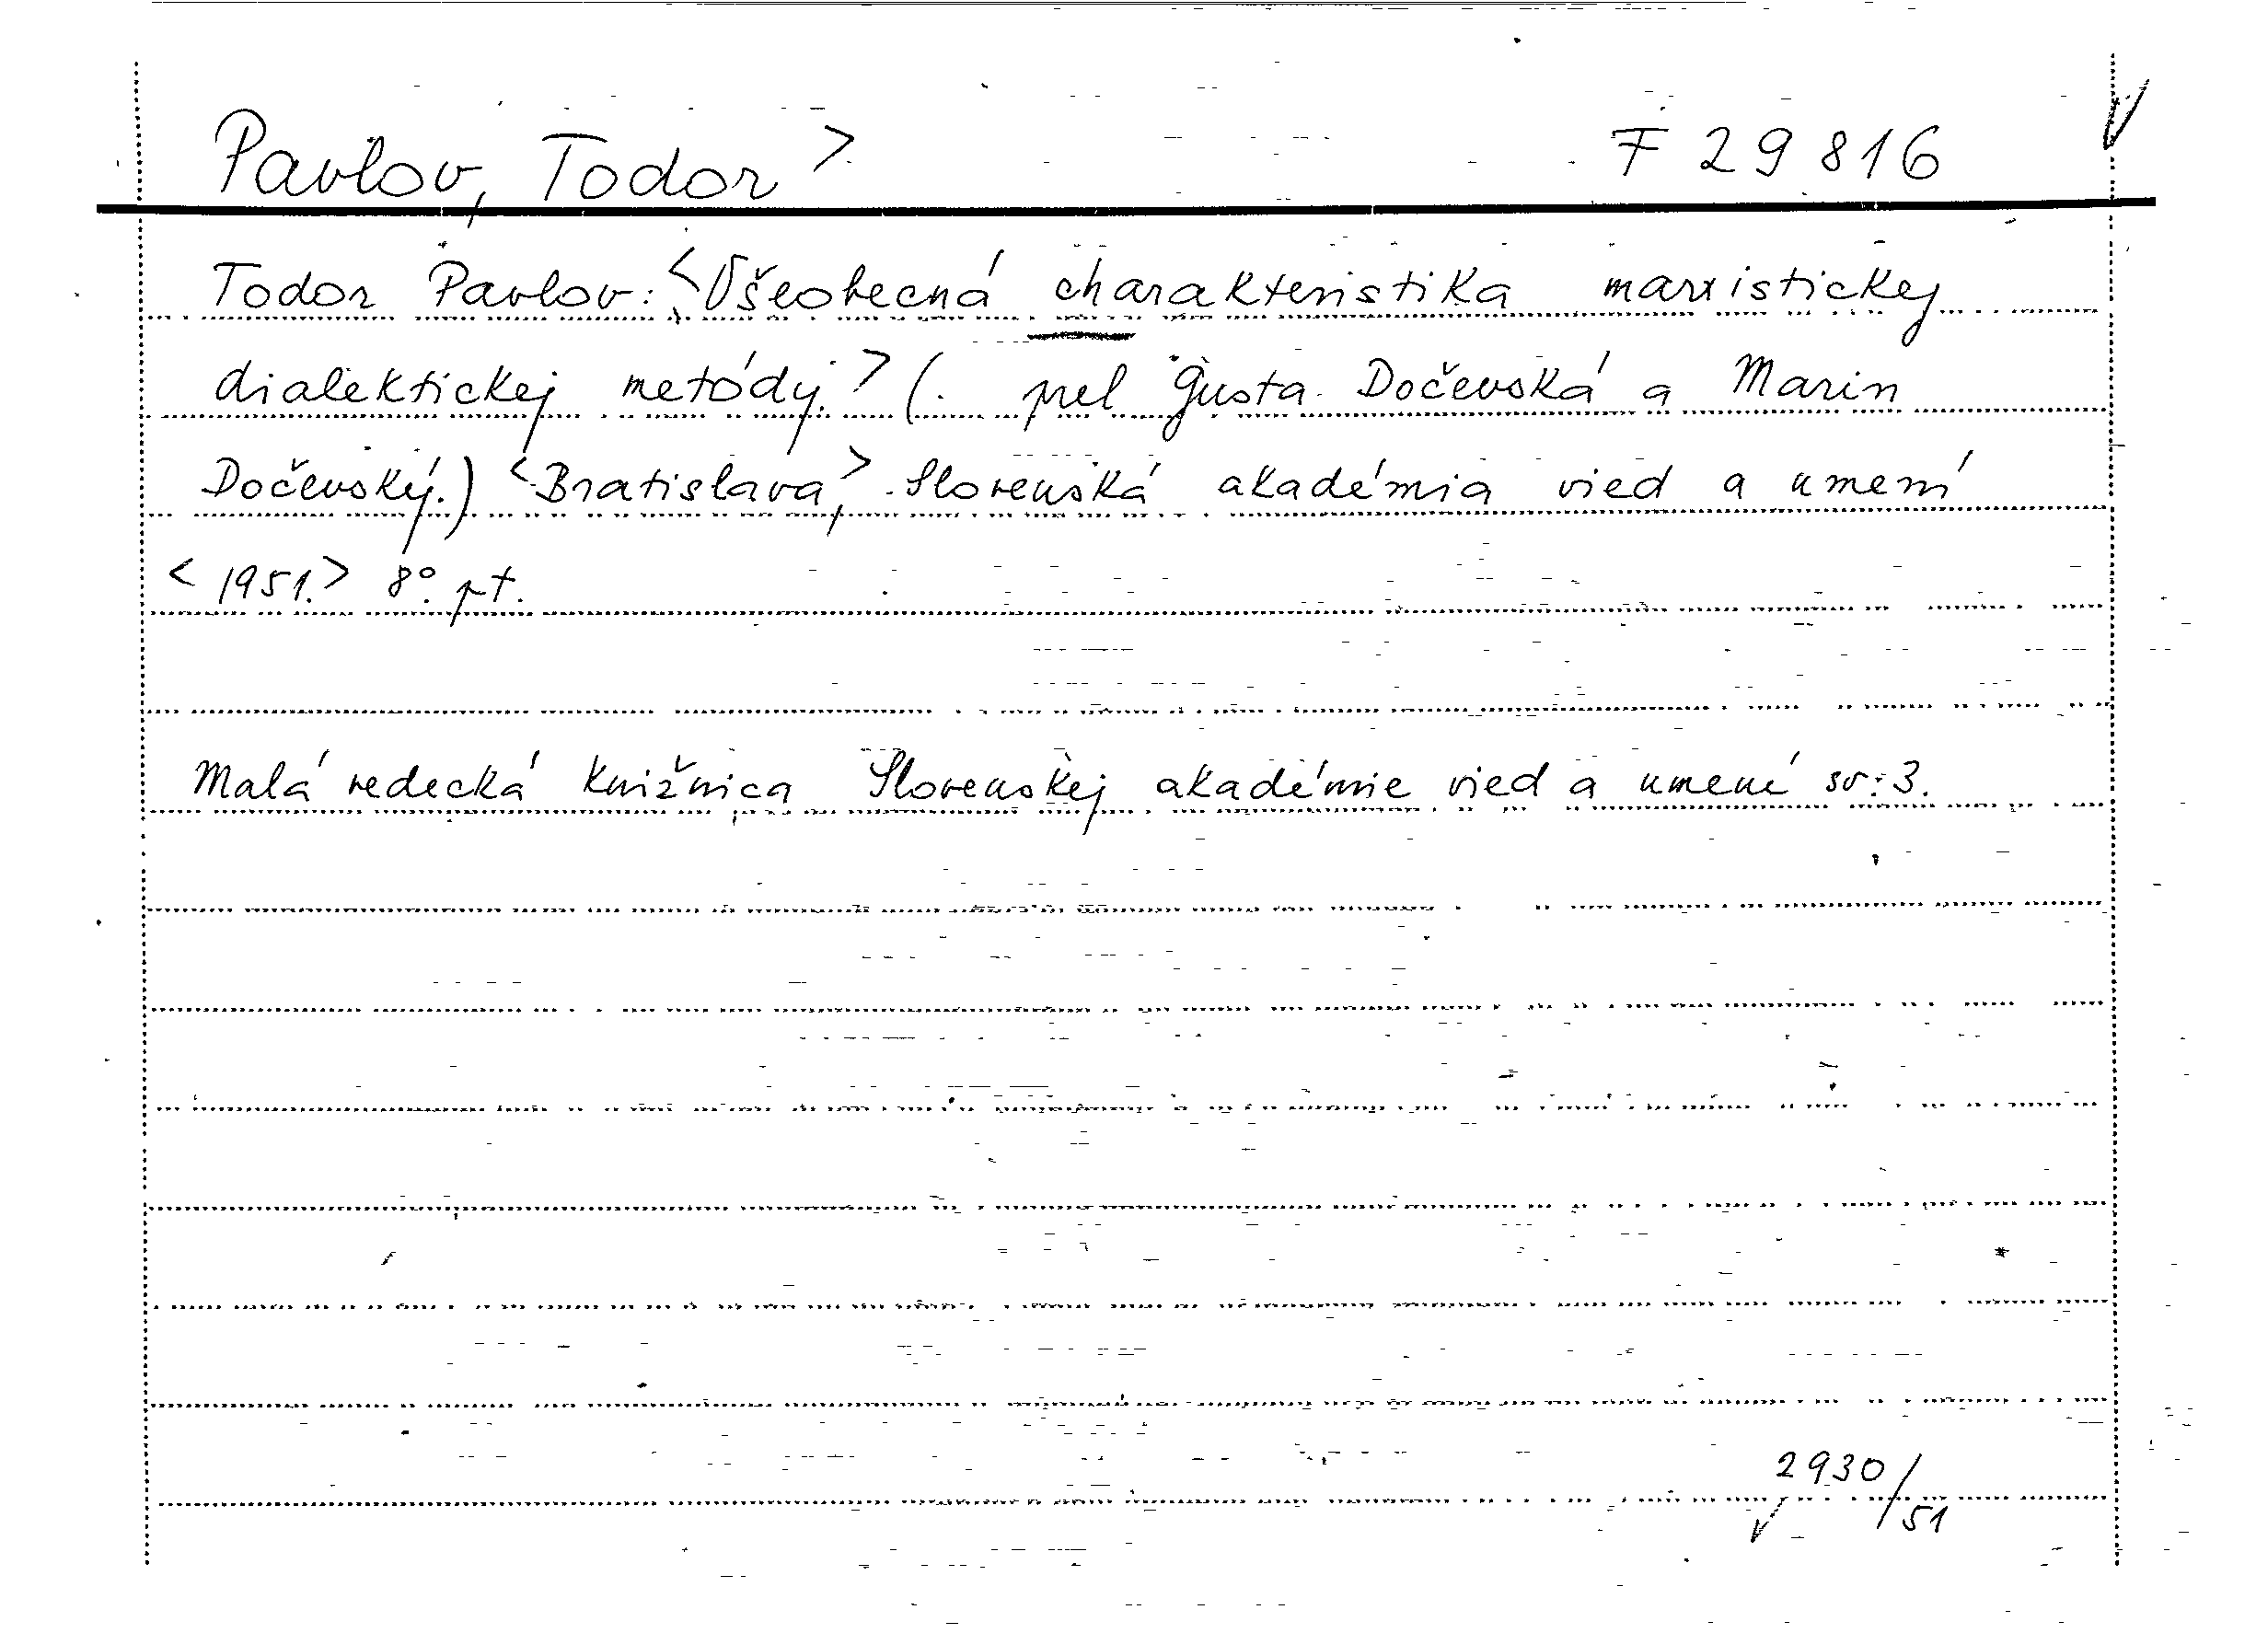 Pavlov, Todor > F 29 816
Todor Pavlov: <Všeobecná charakteristika marxistickej
dialektickej metódy.> (. prel Gusta Dočevská a Marin
Dočevský.) <Bratislava,> Slovenská akadémia vied a umení
<1951.> 8°. pt.
Malá vedecká knižnica Slovenskej akadémie vied a umení sv. 3.
2930/51